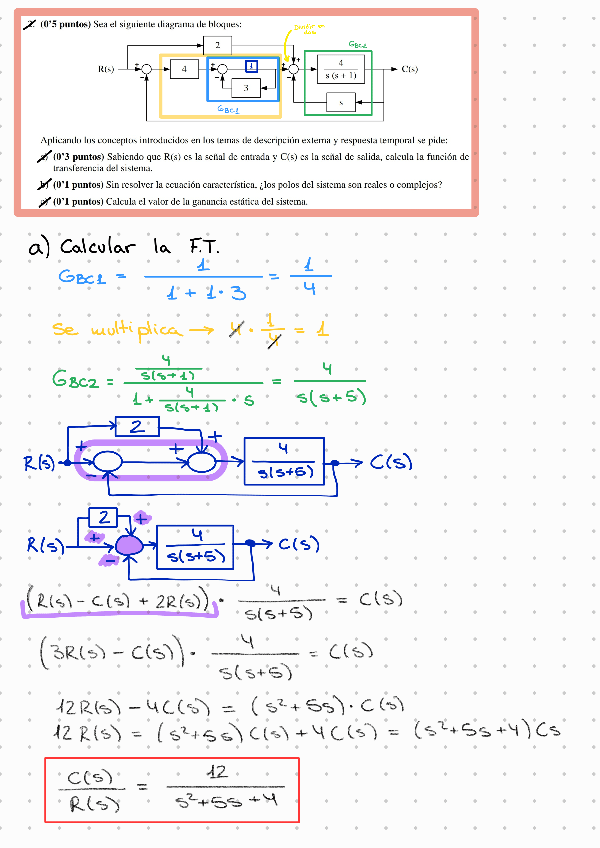 2. (0'5 puntos) Sea el siguiente diagrama de bloques:
GBC2
2
R(s) + − 4 + − 1 + + − 4 / s (s + 1) C(s)
3
s
GBC1
Aplicando los conceptos introducidos en los temas de descripción externa y respuesta temporal se pide:
a) (0'3 puntos) Sabiendo que R(s) es la señal de entrada y C(s) es la señal de salida, calcula la función de
transferencia del sistema.
b) (0'1 puntos) Sin resolver la ecuación característica, ¿los polos del sistema son reales o complejos?
(0'1 puntos) Calcula el valor de la ganancia estática del sistema.
a) Calcular la F.T.
GBC1 = 1 / (1 + 1·3) = 1/4
Se multiplica → 4 · 1/4 = 1
GBC2 = (4 / s(s+1)) / (1 + 4 / s(s+1) · s) = 4 / s(s+5)
2
R(s) + − + + 4 / s(s+5) C(s)
2 +
R(s) + − 4 / s(s+5) C(s)
(R(s) − C(s) + 2R(s)) · 4 / s(s+5) = C(s)
(3R(s) − C(s)) · 4 / s(s+5) = C(s)
12R(s) − 4C(s) = (s²+5s)·C(s)
12R(s) = (s²+5s)C(s)+4C(s) = (s²+5s+4)Cs
C(s) / R(s) = 12 / s²+5s+4